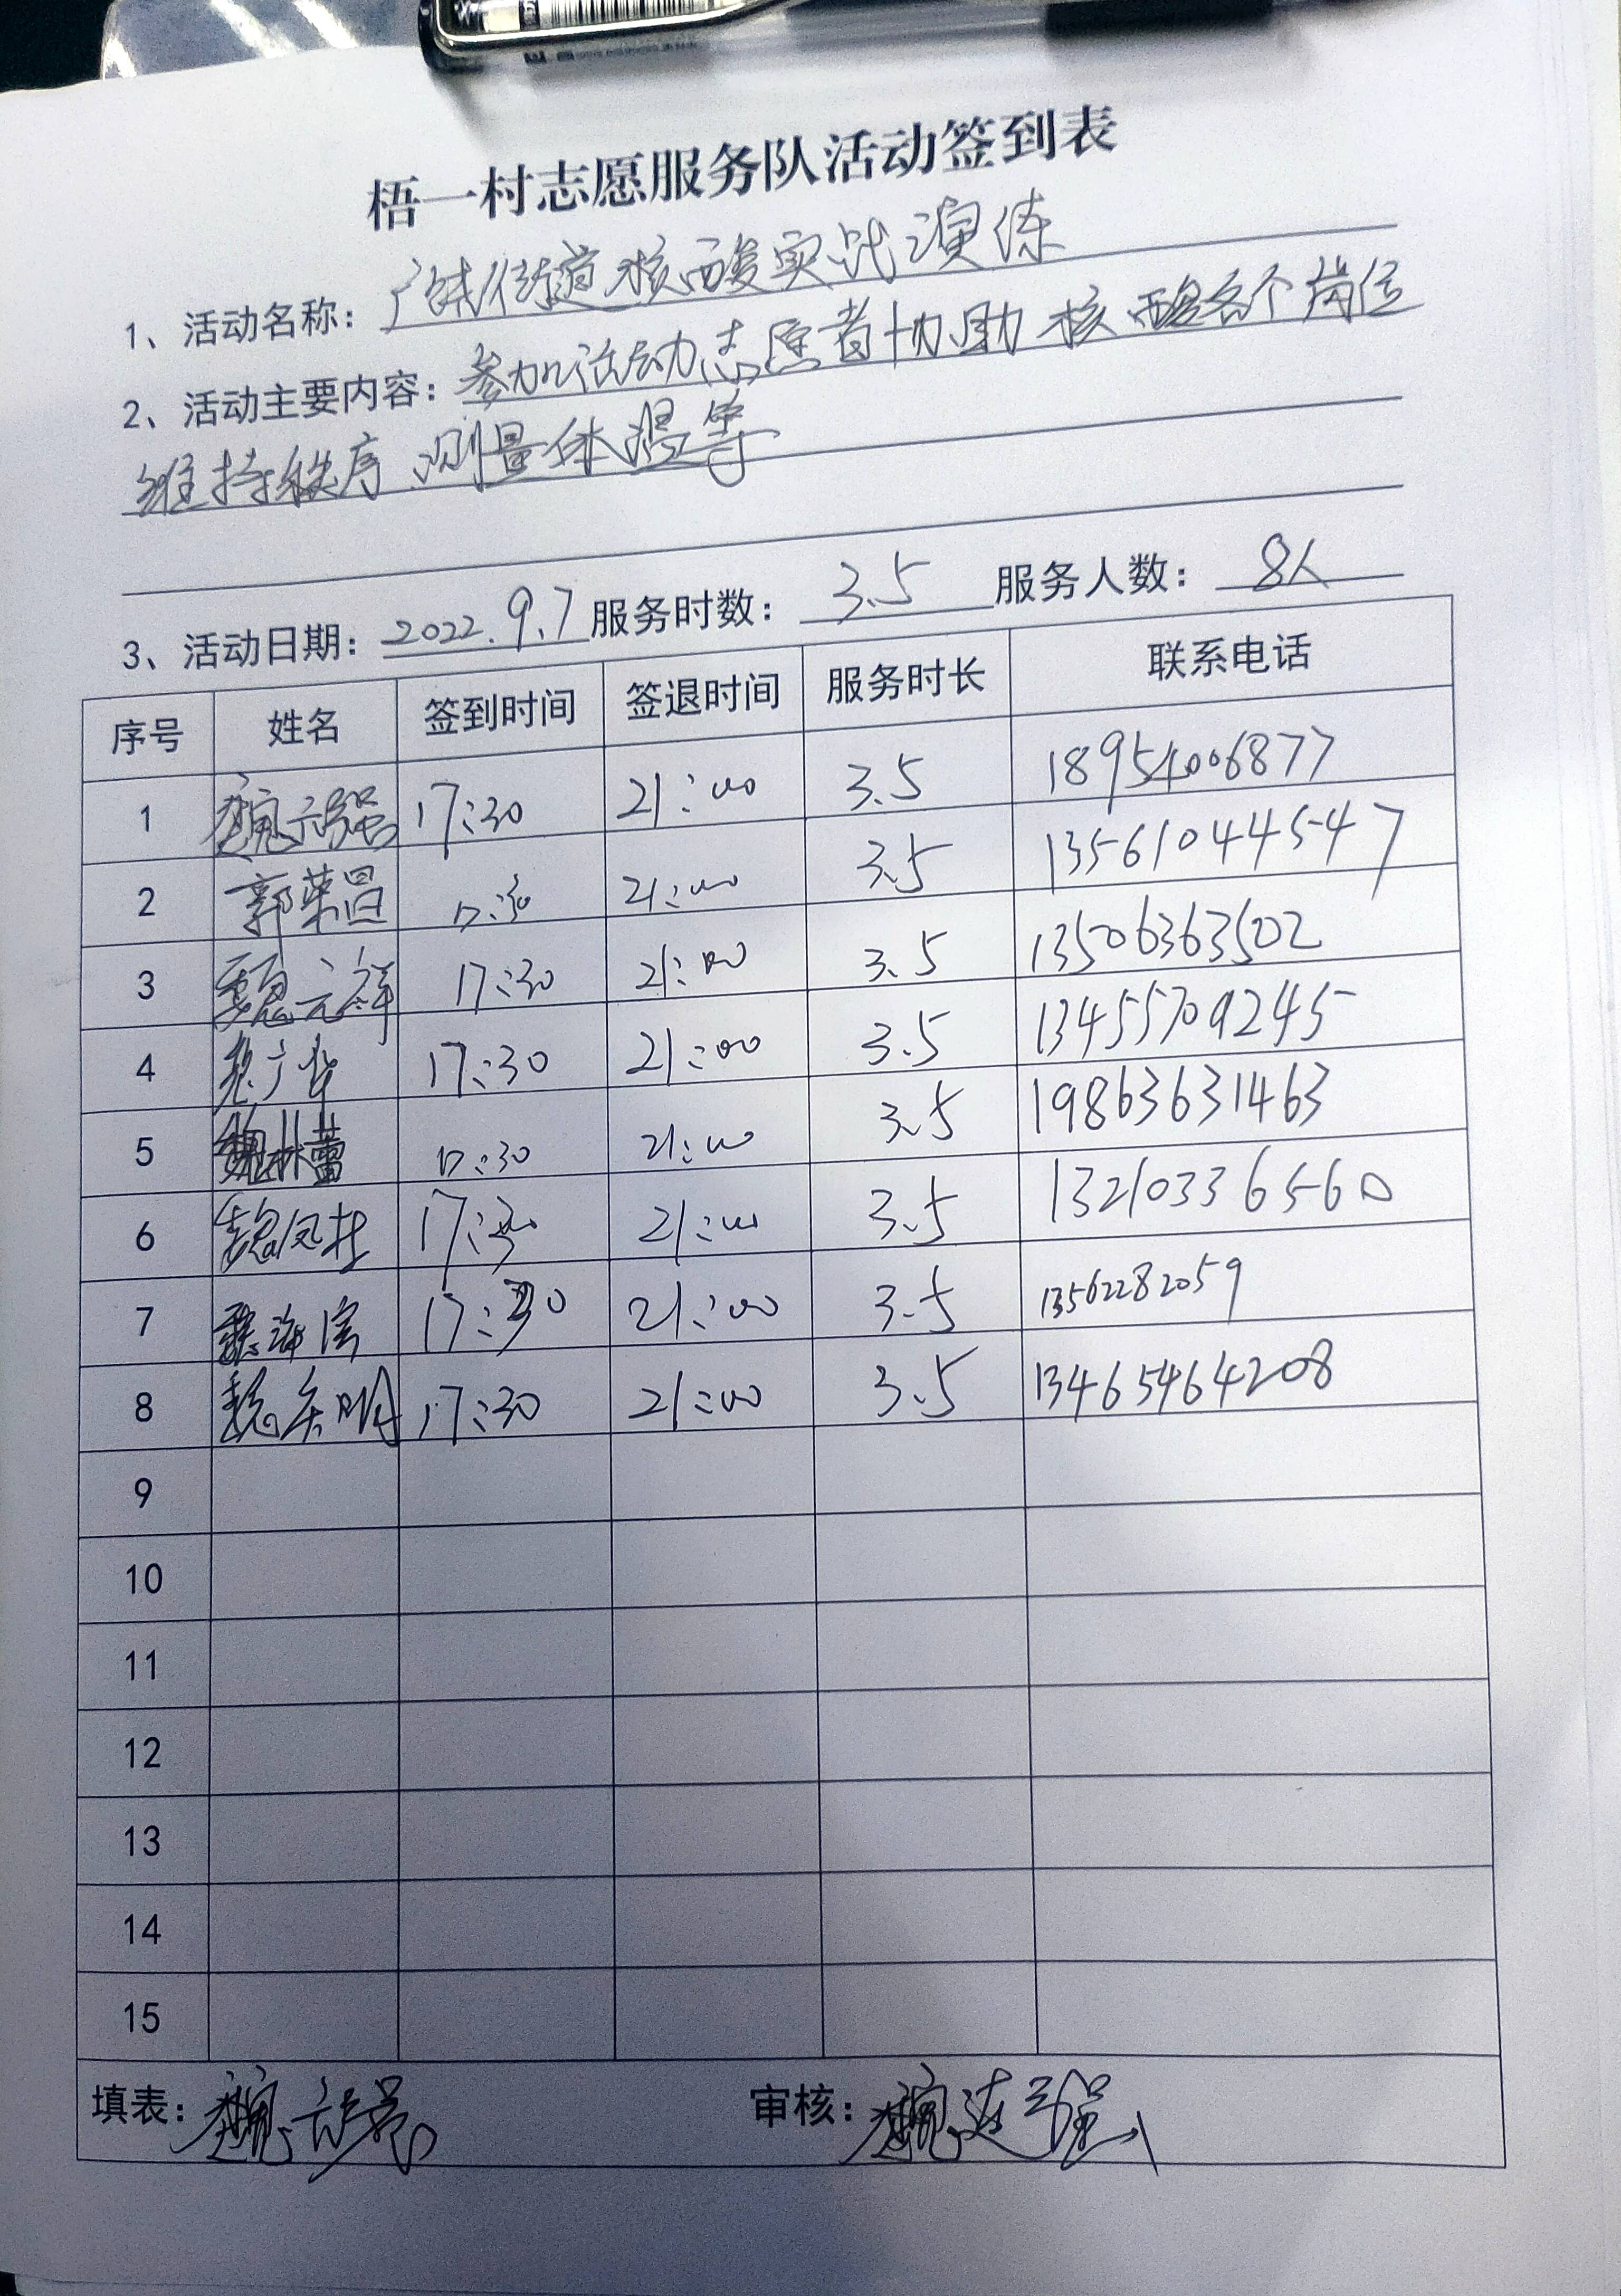 梧一村志愿服务队活动签到表
1、活动名称：广饶街道核酸实战演练
2、活动主要内容：参加活动志愿者协助核酸各个岗位
维持秩序 测量体温等
3、活动日期：2022.9.7 服务时数：3.5 服务人数：8人
序号 姓名 签到时间 签退时间 服务时长 联系电话
1 魏 17:30 21:00 3.5 18954006877
2 郭荣昌 17:30 21:00 3.5 13561044547
3 魏元祥 17:30 21:00 3.5 13506363502
4 17:30 21:00 3.5 13455709245
5 魏林蕾 17:30 21:00 3.5 19863631463
6 魏凤 17:30 21:00 3.5 13210336560
7 魏海 17:30 21:00 3.5 13562282059
8 魏 明 17:30 21:00 3.5 13465464208
9
10
11
12
13
14
15
填表：魏 审核：魏连强